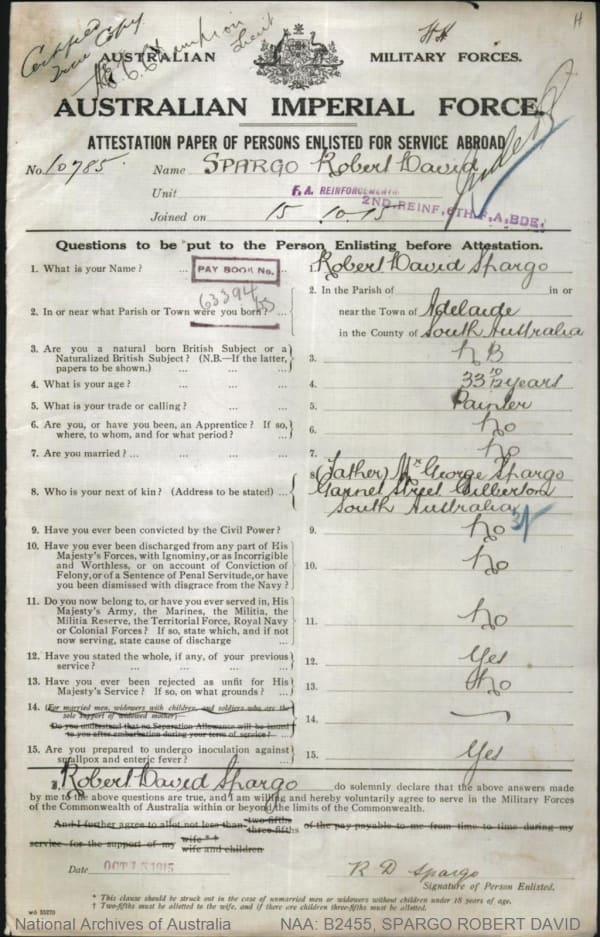 Certified
True Copy
H
AUSTRALIAN MILITARY FORCES.
AUSTRALIAN IMPERIAL FORCE.
ATTESTATION PAPER OF PERSONS ENLISTED FOR SERVICE ABROAD
No. 10785. Name SPARGO Robert David
Unit F.A. REINFORCEMENTS
2ND REINF, 6TH F.A. BDE.
Joined on 15 10.15
Questions to be put to the Person Enlisting before Attestation.
1. What is your Name? ... PAY BOOK No. Robert David Spargo
63394
2. In or near what Parish or Town were you born? ... 2. In the Parish of in or
near the Town of Adelaide
in the County of South Australia
3. Are you a natural born British Subject or a
Naturalized British Subject? (N.B.—If the latter,
papers to be shown.) ... ... 3. N B
4. What is your age? ... ... ... 4. 33 10/12 years
5. What is your trade or calling? ... ... 5. Painter
6. Are you, or have you been, an Apprentice? If so,
where, to whom, and for what period? ... 6. No
7. Are you married? ... ... ... 7. No
8. Who is your next of kin? (Address to be stated) ... 8 (Father) Mr George Spargo
Garnet Street Gilberton
South Australia
9. Have you ever been convicted by the Civil Power? 9. No
10. Have you ever been discharged from any part of His
Majesty's Forces, with Ignominy, or as Incorrigible
and Worthless, or on account of Conviction of
Felony, or of a Sentence of Penal Servitude, or have
you been dismissed with disgrace from the Navy? 10. No
11. Do you now belong to, or have you ever served in, His
Majesty's Army, the Marines, the Militia, the
Militia Reserve, the Territorial Force, Royal Navy
or Colonial Forces? If so, state which, and if not
now serving, state cause of discharge 11. No
12. Have you stated the whole, if any, of your previous
service? ... ... ... ... 12. Yes
13. Have you ever been rejected as unfit for His
Majesty's Service? If so, on what grounds? ... 13. No
14. (For married men, widowers with children, and soldiers who are the
sole support of widowed mother)—
Do you understand that no Separation Allowance will be issued
to you after embarkation during your term of service? ... 14. —
15. Are you prepared to undergo inoculation against
smallpox and enteric fever? ... ... 15. Yes
I, Robert David Spargo do solemnly declare that the above answers made
by me to the above questions are true, and I am willing and hereby voluntarily agree to serve in the Military Forces
of the Commonwealth of Australia within or beyond the limits of the Commonwealth.
And I further agree to allot not less than two-fifths three-fifths of the pay payable to me from time to time during my
service for the support of my wife * † wife and children
Date OCT 15 1915 R D Spargo
Signature of Person Enlisted.
* This clause should be struck out in the case of unmarried men or widowers without children under 18 years of age.
† Two-fifths must be allotted to the wife, and if there are children three-fifths must be allotted.
National Archives of Australia NAA: B2455, SPARGO ROBERT DAVID